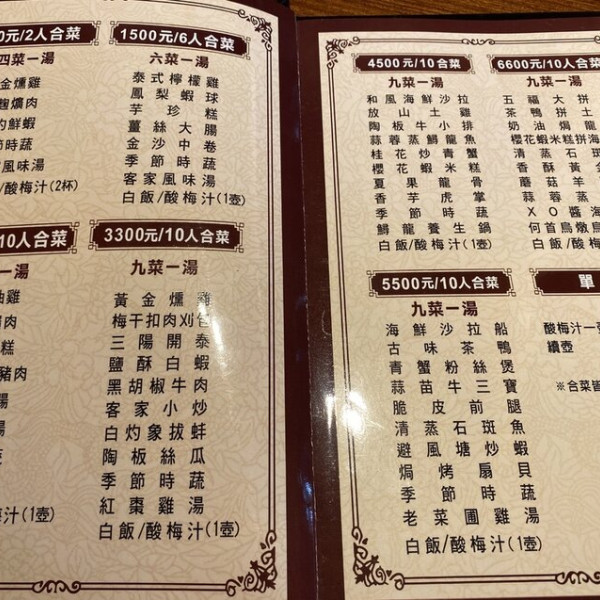 0元/2人合菜
四菜一湯
金燻雞
鮮蝦
時蔬
風味湯
/酸梅汁(2杯)
1500元/6人合菜
六菜一湯
泰式檸檬雞
鳳梨蝦球
芋珍糕
薑絲大腸
金沙中卷
季節時蔬
客家風味湯
白飯/酸梅汁(1壺)
10人合菜
一湯
油雞
肉
糕
豬肉
湯
汁(1壺)
3300元/10人合菜
九菜一湯
黃金燻雞
梅干扣肉刈包
三陽開泰
鹽酥白蝦
黑胡椒牛肉
客家小炒
白灼象拔蚌
陶板絲瓜
季節時蔬
紅棗雞湯
白飯/酸梅汁(1壺)
4500元/10合菜
九菜一湯
和風海鮮沙拉
放山土雞
陶板牛小排
蒜蓉蒸鱘龍魚
桂花炒青蟹
櫻花蝦米糕
夏果龍骨
香芋虎掌
季節時蔬
鱘龍養生鍋
白飯/酸梅汁(1壺)
6600元/10人合菜
九菜一湯
五福大拼
茶鴨拼土
奶油焗龍
櫻花蝦米糕拼海
清蒸石斑
香酥黃金
蘑菇羊
蒜蓉蒸
XO醬海
何首烏燉烏
白飯/酸梅
5500元/10人合菜
九菜一湯
海鮮沙拉船
古味茶鴨
青蟹粉絲煲
蒜苗牛三寶
脆皮前腿
清蒸石斑魚
避風塘炒蝦
焗烤扇貝
季節時蔬
老菜圃雞湯
白飯/酸梅汁(1壺)
單
酸梅汁一壺
續壺
※合菜皆